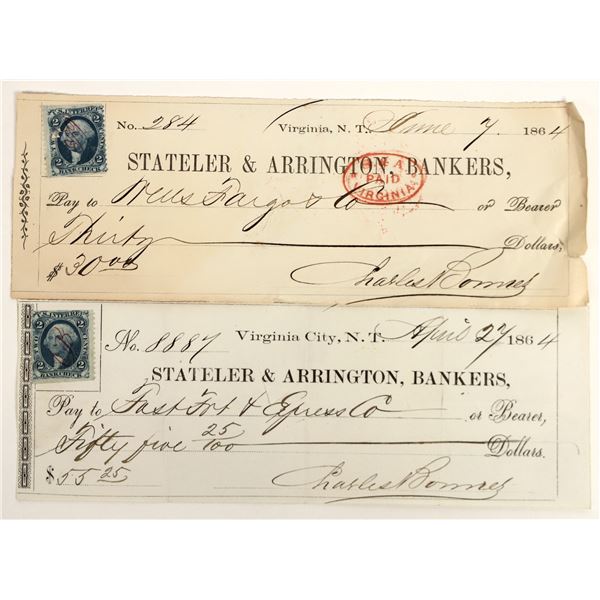 U.S. INTER. REV.
2 2
BANK CHECK
No. 284 Virginia, N. T. June 7, 1864
STATELER & ARRINGTON, BANKERS,
PAID
VIRGINIA
Pay to Wells Fargo & Co or Bearer
Thirty Dollars,
$30.00
Charles Bonner
U.S. INTER. REV.
2 2
BANK CHECK
No. 8887 Virginia City, N. T. April 27 1864
STATELER & ARRINGTON, BANKERS,
Pay to Fast Frt & Epress Co or Bearer,
Fifty five 25/100 Dollars.
$55 25
Charles Bonner